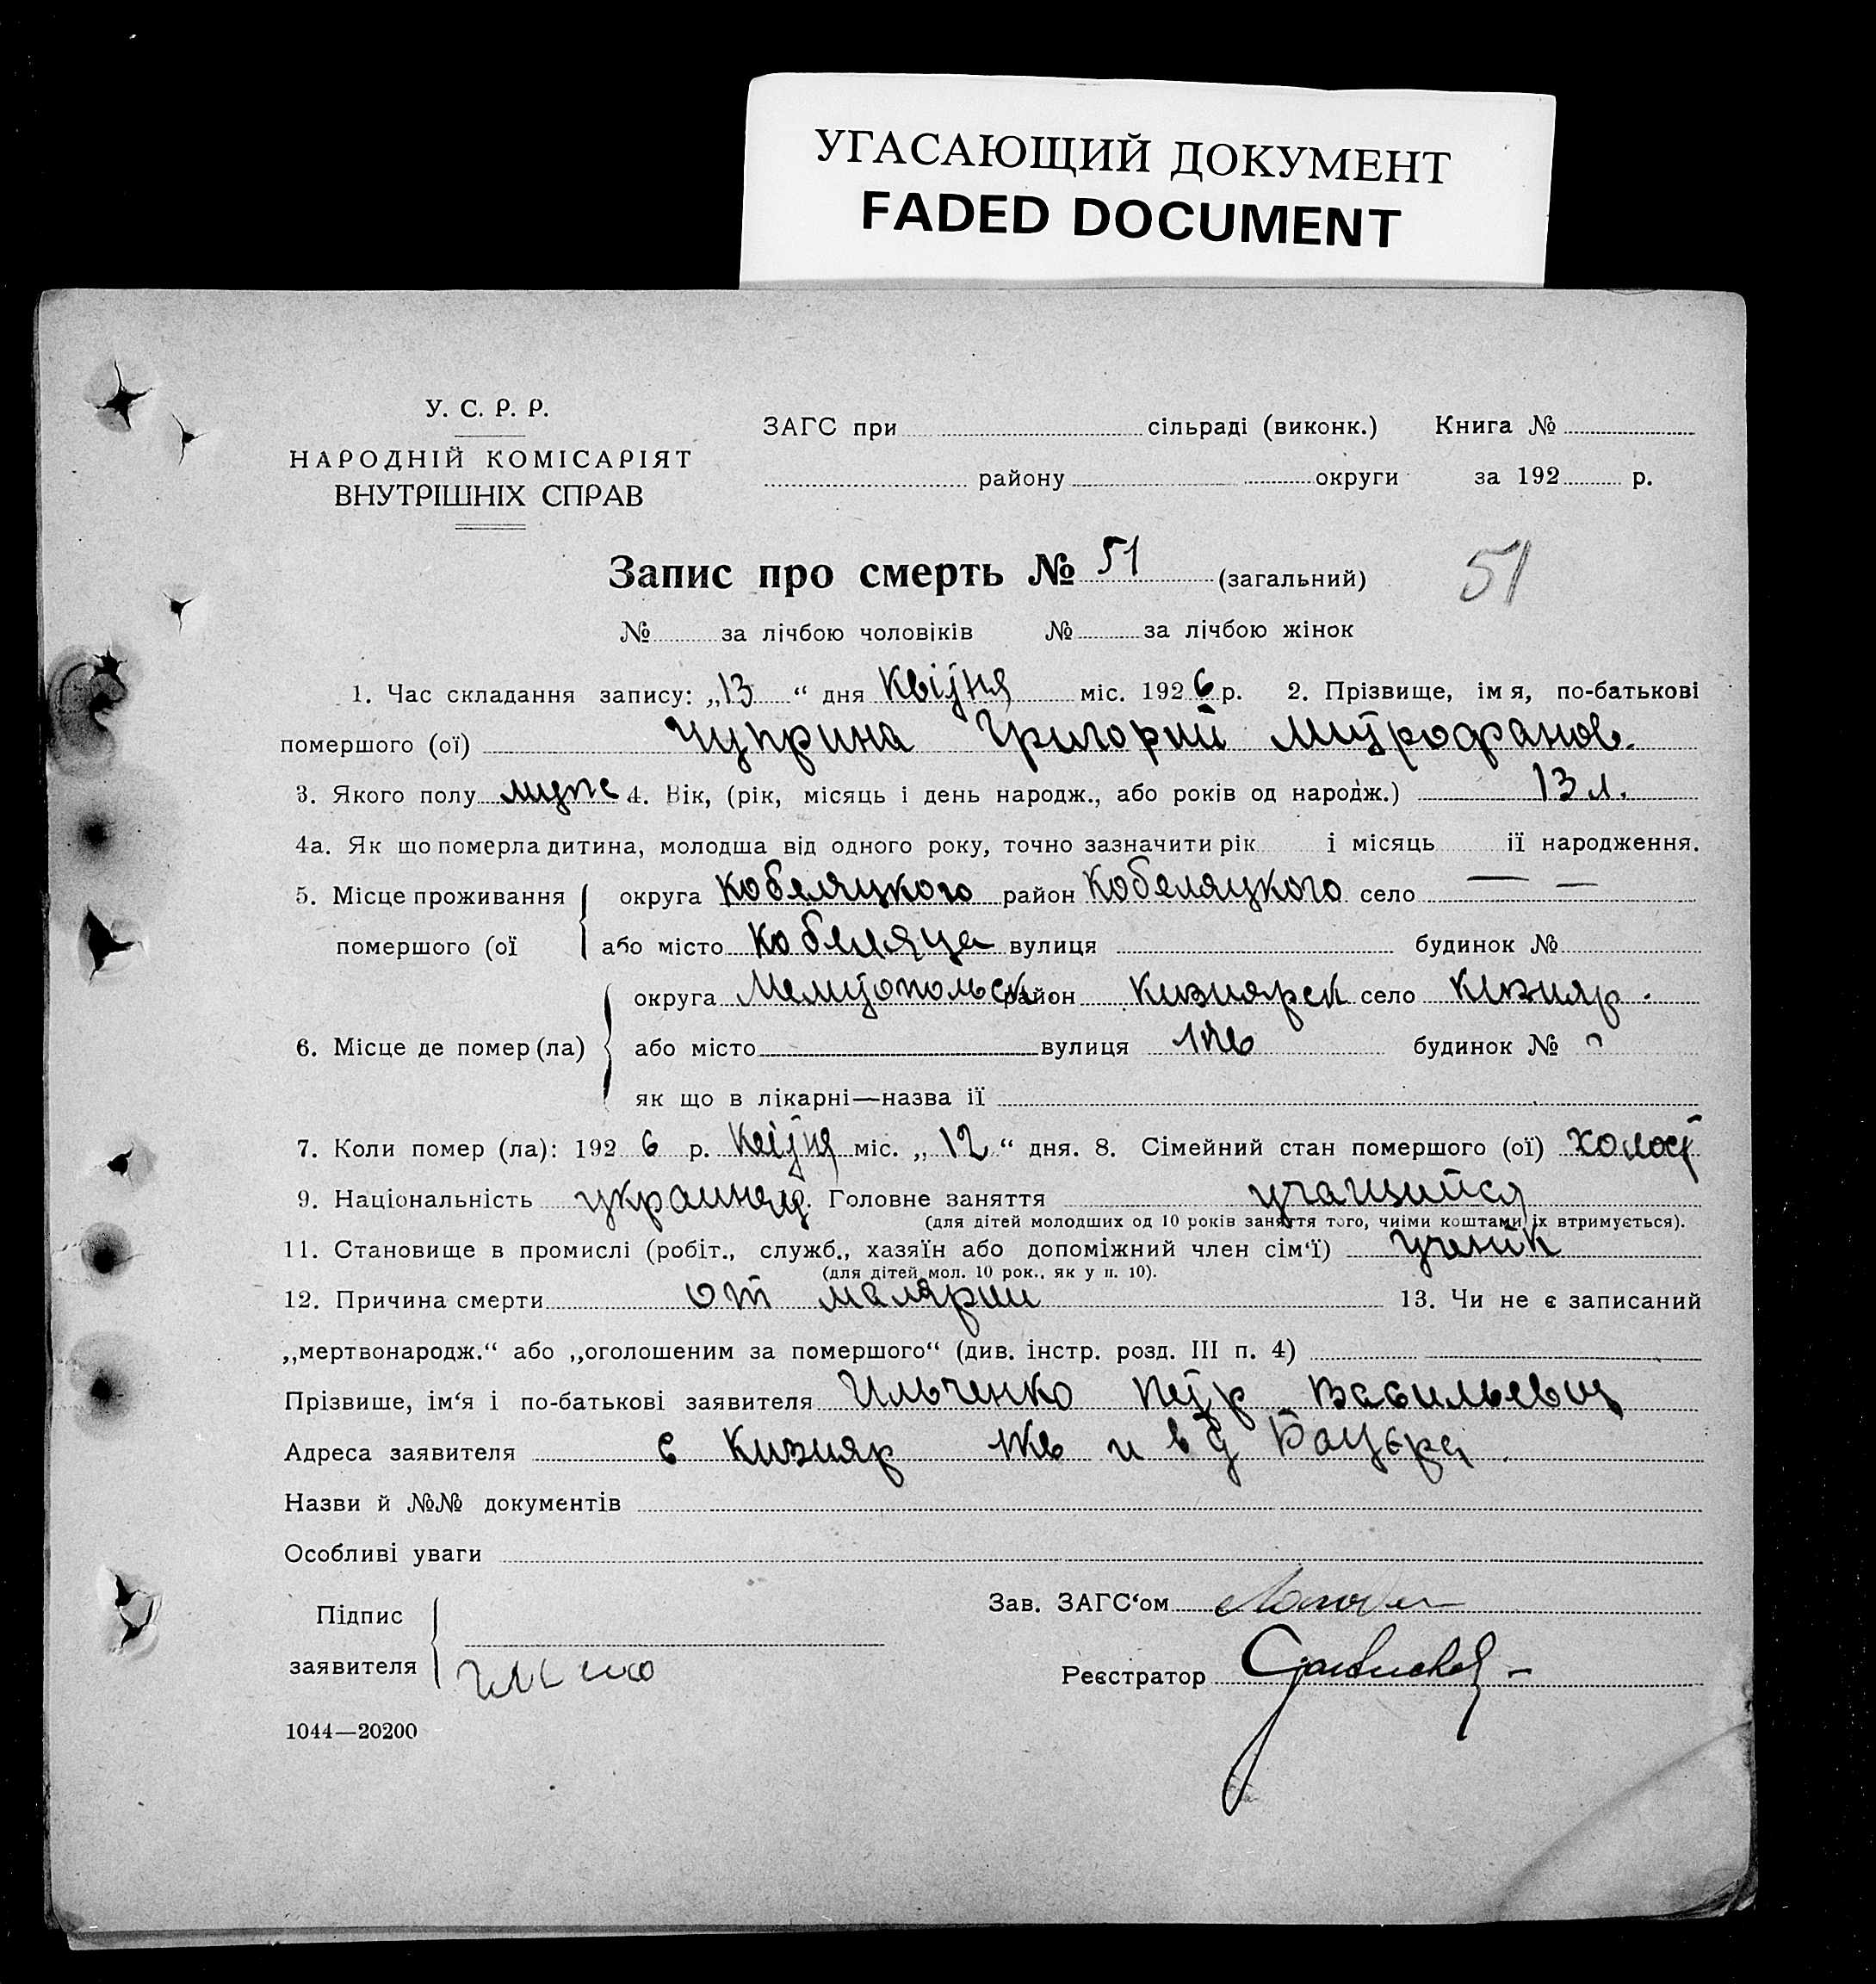 УГАСАЮЩИЙ ДОКУМЕНТ
FADED DOCUMENT
У. С. Р. Р.
НАРОДНІЙ КОМІСАРІЯТ
ВНУТРІШНІХ СПРАВ
ЗАГС при сільраді (виконк.) Книга №
району округи за 192 р.
Запис про смерть № 51 (загальний) 51
№ за лічбою чоловіків № за лічбою жінок
1. Час складання запису: „13 “ дня Квітня міс. 1926 р. 2. Прізвище, ім я, по-батькові
помершого (ої) Чуприна Григорий Митрофанов.
3. Якого полу муж 4. Вік, (рік, місяць і день народж., або років од народж.) 13 л.
4а. Як що померла дитина, молодша від одного року, точно зазначити рік і місяць ії народження.
5. Місце проживання округа Кобеляцкого район Кобеляцкого село — —
помершого (ої або місто Кобеляца вулиця будинок №
округа Мелитопольск район Кизиярск село Кизияр.
6. Місце де помер (ла) або місто вулиця будинок № ?
як що в лікарні—назва ії
7. Коли помер (ла): 1926 р. Квітня міс. „12“ дня. 8. Сімейний стан помершого (ої) холост
9. Національність Головне заняття учащийся
(для дітей молодших од 10 років заняття того, чиїми коштами їх втримується).
11. Становище в промислі (робіт., служб., хазяїн або допоміжний член сім‘ї) ученик
(для дітей мол. 10 рок., як у п. 10).
12. Причина смерти от малярии 13. Чи не є записаний
„мертвонародж.“ або „оголошеним за помершого“ (див. інстр. розд. III п. 4)
Прізвише, ім‘я і по-батькові заявителя Ильченко Петр Васильевич
Адреса заявителя с Кизияр
Назви й №№ документів
Особливі уваги
Підпис
заявителя
Зав. ЗАГС‘ом
Реєстратор
1044—20200